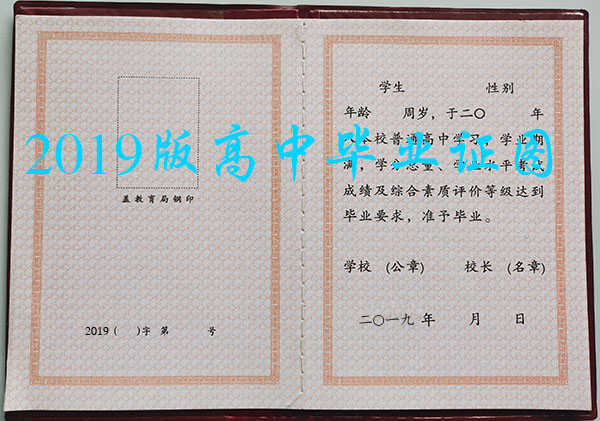 盖教育局钢印
2019 (    )字 第      号
学生      性别
年龄    周岁，于二〇    年
本校普通高中学习，学业期
满，学分总量、学业水平考试
成绩及综合素质评价等级达到
毕业要求，准予毕业。
学校 (公章)    校长 (名章)
二〇一九 年    月    日
2019版高中毕业证图